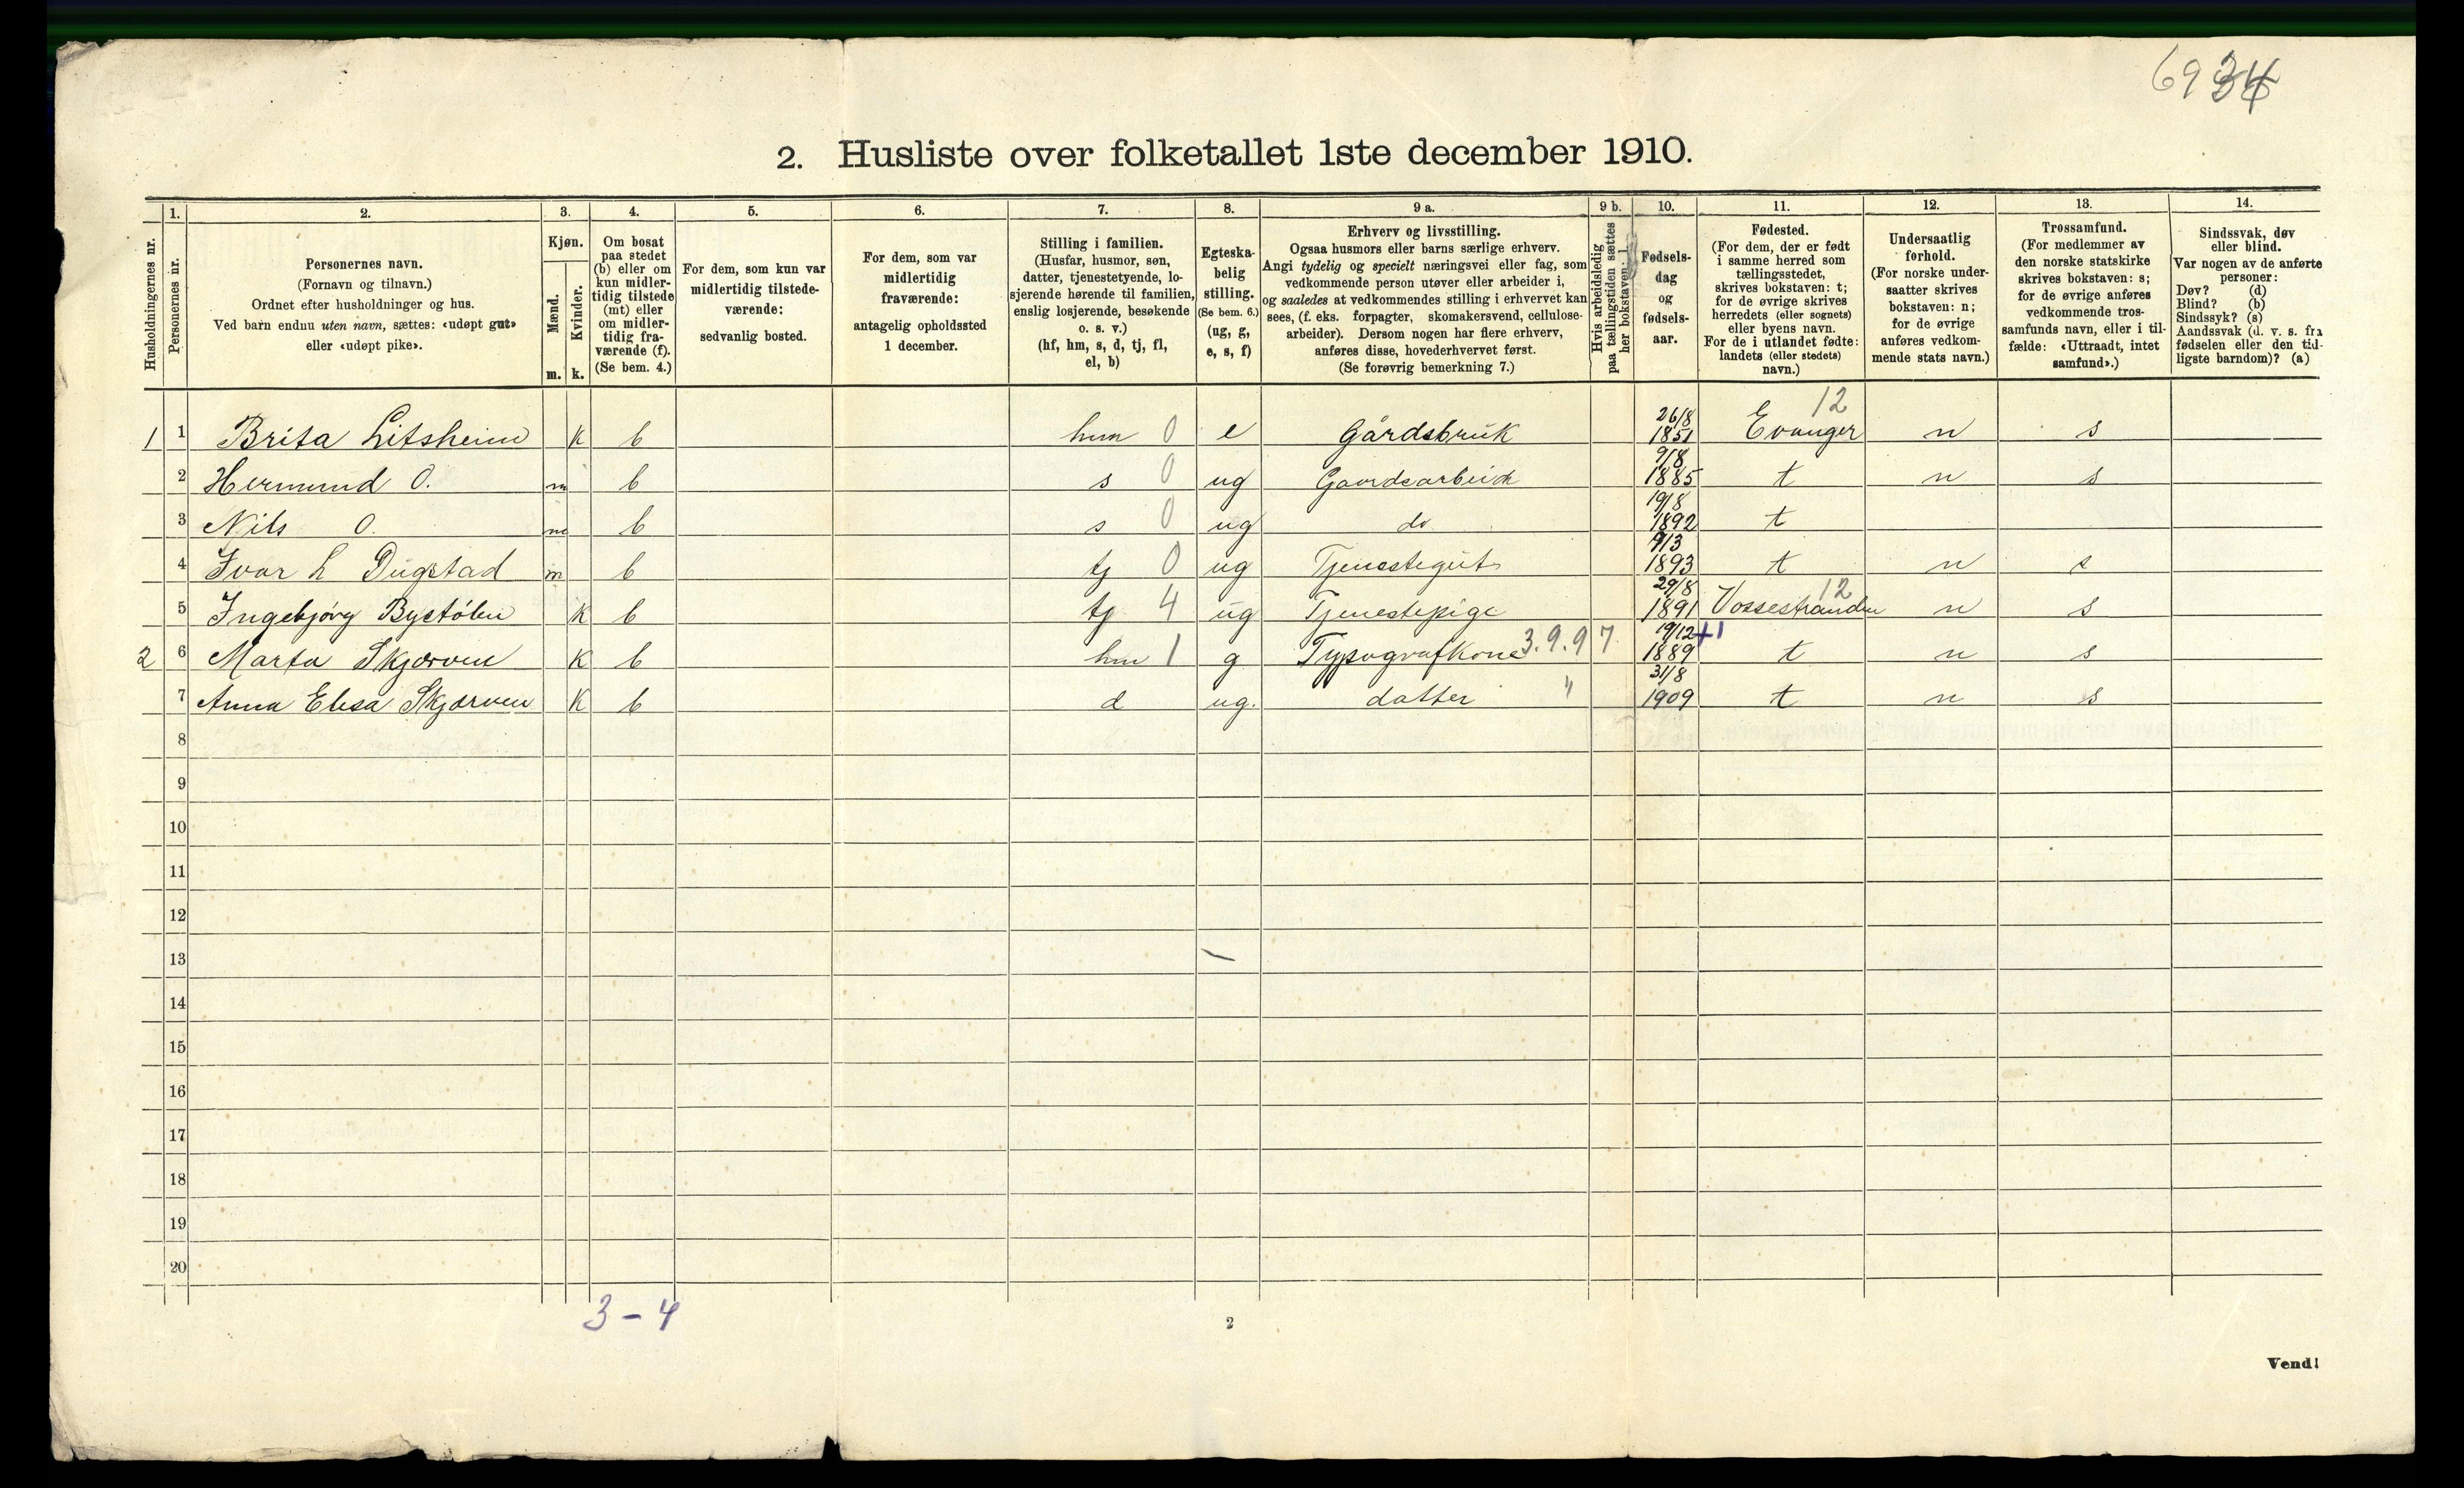 6934
2. Husliste over folketallet 1ste december 1910.
Husholdningernes nr.
1.
Personernes nr.
2.
Personernes navn.
(Fornavn og tilnavn.)
Ordnet efter husholdninger og hus.
Ved barn endnu uten navn, sættes: «udøpt gut»
eller «udøpt pike».
3.
Kjøn.
Mænd.
m.
Kvinder.
k.
4.
Om bosat
paa stedet
(b) eller om
kun midler-
tidig tilstede
(mt) eller
om midler-
tidig fra-
værende (f).
(Se bem. 4.)
5.
For dem, som kun var
midlertidig tilstede-
værende:
sedvanlig bosted.
6.
For dem, som var
midlertidig
fraværende:
antagelig opholdssted
1 december.
7.
Stilling i familien.
(Husfar, husmor, søn,
datter, tjenestetyende, lo-
sjerende hørende til familien,
enslig losjerende, besøkende
o. s. v.)
(hf, hm, s, d, tj, fl,
el, b)
8.
Egteska-
belig
stilling.
(Se bem. 6.)
(ug, g,
e, s, f)
9 a.
Erhverv og livsstilling.
Ogsaa husmors eller barns særlige erhverv.
Angi tydelig og specielt næringsvei eller fag, som
vedkommende person utøver eller arbeider i,
og saaledes at vedkommendes stilling i erhvervet kan
sees, (f. eks. forpagter, skomakersvend, cellulose-
arbeider). Dersom nogen har flere erhverv,
anføres disse, hovederhvervet først.
(Se forøvrig bemerkning 7.)
9 b.
Hvis arbeidsledig
paa tællingstiden sættes
her bokstaven: l
10.
Fødsels-
dag
og
fødsels-
aar.
11.
Fødested.
(For dem, der er født
i samme herred som
tællingsstedet,
skrives bokstaven: t;
for de øvrige skrives
herredets (eller sognets)
eller byens navn.
For de i utlandet fødte:
landets (eller stedets)
navn.)
12.
Undersaatlig
forhold.
(For norske under-
saatter skrives
bokstaven: n;
for de øvrige
anføres vedkom-
mende stats navn.)
13.
Trossamfund.
(For medlemmer av
den norske statskirke
skrives bokstaven: s;
for de øvrige anføres
vedkommende tros-
samfunds navn, eller i til-
fælde: «Uttraadt, intet
samfund».)
14.
Sindssvak, døv
eller blind.
Var nogen av de anførte
personer:
Døv? (d)
Blind? (b)
Sindssyk? (s)
Aandssvak (d. v. s. fra
fødselen eller den tid-
ligste barndom)? (a)
1 1 Brita Litsheim K b hm 0 e Gårdsbruk 26/8 1851 Evanger 12 n s
2 Hermund O. m b s 0 ug Gaardsarbeid 9/8 1885 t n s
3 Nils O. m b s 0 ug do 19/8 1892 t
4 Ivar L Dugstad m b tj 0 ug Tjenestegut 9/3 1893 t n s
5 Ingebjørg Bystølen K b tj 4 ug Tjenestepige 29/8 1891 Vossestranden 12 n s
2 6 Marta Skjerven K b hm 1 g Typografkone 3.9.97 19/12 +1 1889 t n s
7 Anna Elisa Skjerven K b d ug. datter " 31/8 1909 t n s
8
9
10
11
12
13
14
15
16
17
18
19
20
3-4
2
Vend!